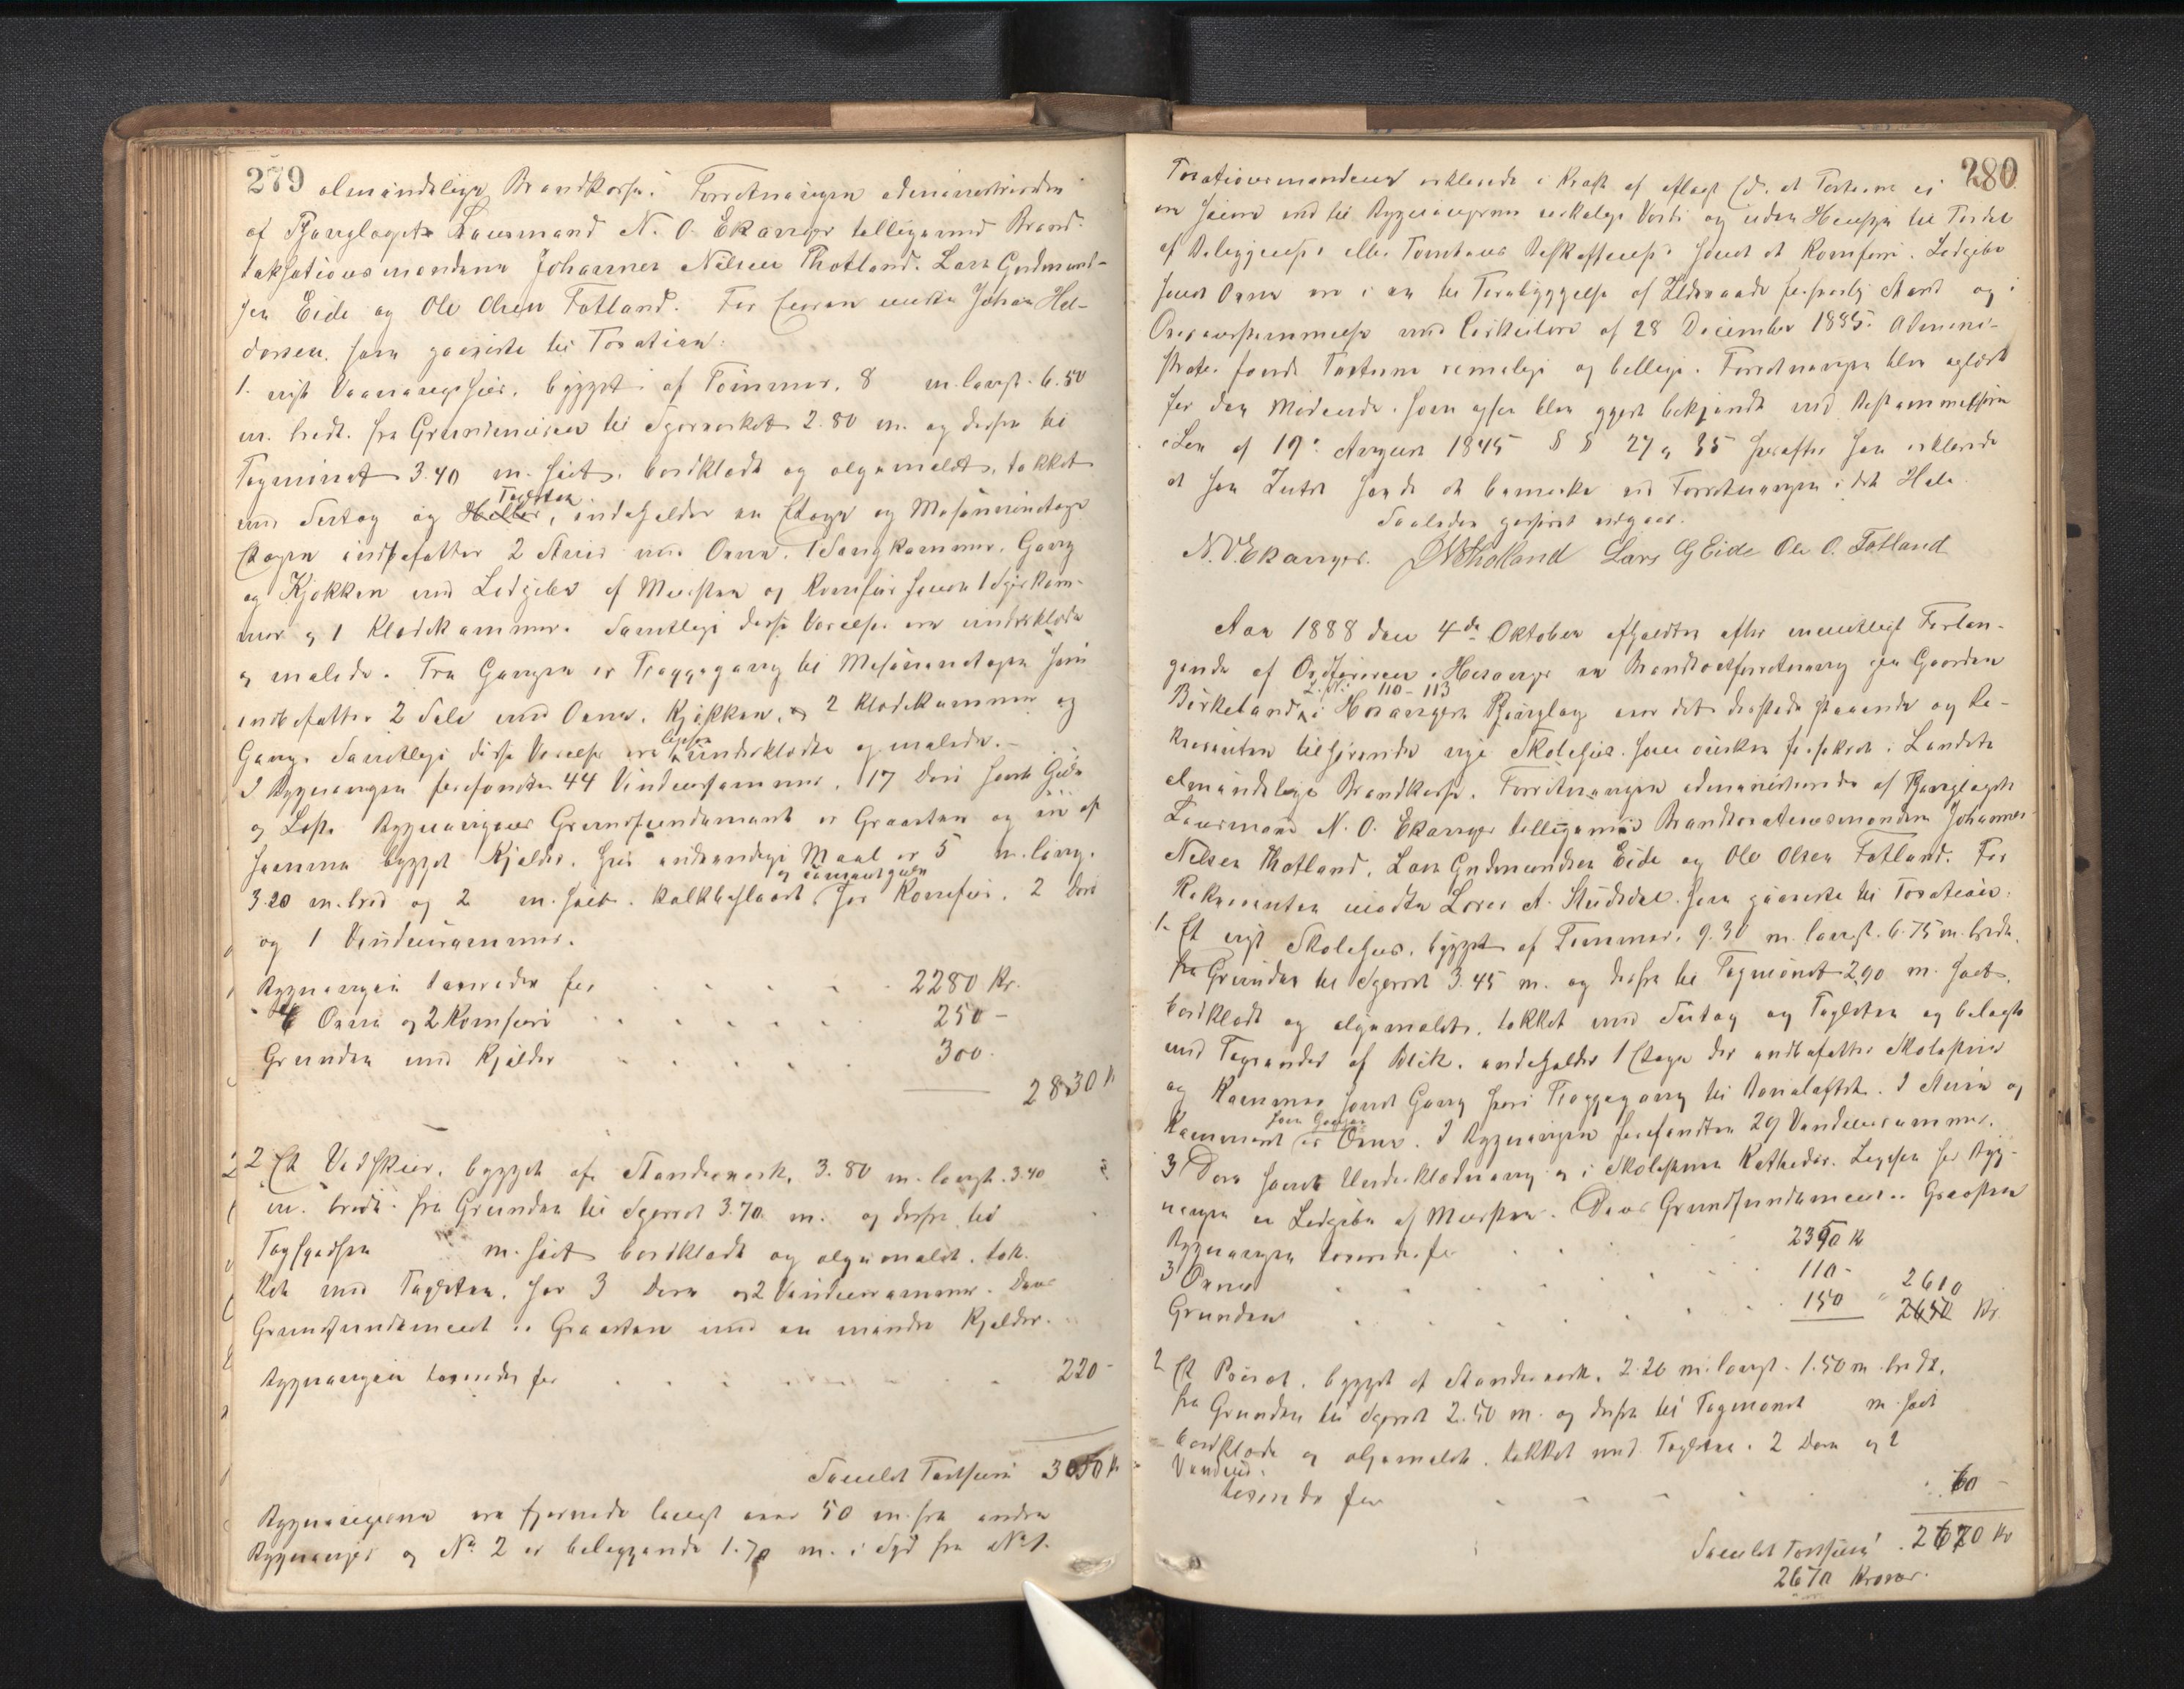 279
almindelige Brandkasse. Forretningen administreredes
af Thinglagets Lensmand N. O. Ekanger tilligemed Brand-
taksationsmændene Johannes Nilsen Thotland. Lars Gudmund-
sen Eide og Ole Olsen Fotland. For Eieren mødte Johan Hal-
dorsen. som paaviste til Taxation:
1. nyt Vaaningshus, bygget af Tømmer, 8 m. langt. 6.50
m. bredt. fra Grundmuren til Sperrerket 2.80 m. og derfra til
Tagmønet 3.40 m. høit, bordklædt og oljemalet, tækket
med Sutag og Heller, Taglsten indeholder en Etage og Mesaninetage
Etagen indbefatter 2 Stuer med Ovne. 1 Sengkammer. Gang
og Kjøkken med Ledpibe af Mursten og Komfur samt 1 Spiskam-
mer og 1 Klædekammer. Samtlige disse Værelser ere underklædte
og malede. Fra Gangen er Trappegang til Mesaninetagen som
indbefatter 2 Sale med Ovne. Kjøkken, og 2 Klædekammer og
Gang. Samtlige disse Værelser ere underklædte og malede.-
I Bygningen forefandtes 44 Vinduesrammer. 17 Døre samt
og Bygningens Grundfundament er Graasten og en af
samme bygget Kjelder. hvis indvendige Maal er 5 m. lang.
3.20 m. bred og 2 m. høit. kalkbeslaaet har Komfur. 2 Døre
og 1 Vinduesramme.
Bygningen taxeredes for 2280 Kr.
4 Ovne og 2 Komfurer 250 -
Grunden med Kjelder 300.
2830 K
2. Et Vedskur, bygget af Standerverk, 3.80 m. langt. 3.40
m. bredt. fra Grunden til Sperret 3.70. m. og derfra til
m. høit bordklædt og oljemalet. tæk-
ket med Taglsten. har 3 Døre og 2 Vinduesrammer. Dens
Grundfundament er Graasten med en mindre Kjelder.
Bygningen taxeredes for 220 -
Samlet Taxtsum 3050 K
Bygningerne ere fjernede længst over 50 m. fra andre
Bygninger og No 2 er beliggende 1.70 m. i Syd fra No 1.
280
Taxationsmændene erklærede i Kraft af aflagt Ed. at Taxterne ei
ere høiere end til Bygningernes virkelige Værdi og uden Hensyn til Fordel
af Beliggenhed eller Tomtens Beskaffenhed samt at Komfurer. Ledpiber
samt Ovne ere i en til Forebyggelse af Ildsvaade forsvarlig Stand og i
Overensstemmelse med Cirkulære af 28 December 1885. Admini-
strator fandt Taxterne rimelige og billige. Forretningen blev oplæst
for den Mødende. som ogsaa blev gjort bekjendt med Bestemmelserne
i Lov af 19. August 1845 § § 27 og 35 hvorefter han erklærede
at han Intet havde at bemærke ved Forretningen i det Hele.
Saaledes passeret udgaar.
N. O Ekanger. J N Thotland Lars G Eide Ole O. Fotland
Aar 1888 den 4de Oktober afholdtes efter mundtligt Forlan-
gende af Ordføreren i Hosanger en Brandtaxtforretning paa Gaarden
Birkeland, L. N. 110-113 i Hosangers Thinglag over det dersteds staaende og Re-
kvirenten tilhørende nye Skolehus. som ønskes forsikret i Landets
almindelige Brandkasse. Forretningen administreredes af Thinglagets
Lensmand N. O. Ekanger tilligemed Brandtaxationsmændene Johannes
Nilsen Thotland, Lars Gudmundsen Eide og Ole Olsen Fotland. For
Rekvirenten mødte Lærer A. Studsdal. som paaviste til Taxation:
1. Et nyt Skolehus, bygget af Tømmer, 9.30 m. langt. 6.75 m. bredt.
fra Grunden til Sperret 3.45 m. og derfra til Tagmønet 2.90 m. høit.
bordklædt og oljemalet, tækket med Sutag og Taglsten og belagt
med Tagrender af Blik. indeholder 1 Etage der indbefatter Skolestue
og Kammer samt Gang hvori Trappegang til I Stuen og
Kammeret er Ovne. I Bygningen forefandtes 29 Vinduesrammer.
3 Døre samt Underklædning og i Skolestuen Katheder. for Byg-
ningen er Ledpibe af Mursten. Dens Grundfundament er Graasten
Bygningen taxeredes for 2350 K
3 Ovne 110 - 2610
Grunden 150 2650 Kr
2 Et Privet. bygget af Standerverk, 2.20 m. langt. 1.50 m bredt.
fra Grunden til Sperret 2.50 m. og derfra til Tagmønet m. høit
bordklædt og oljemalet. tækket med Taglsten. 2 Døre og 2
Vinduer.
taxeredes for 60 -
Samlet Taxtsum 2670 Kr
2670 Kroner.